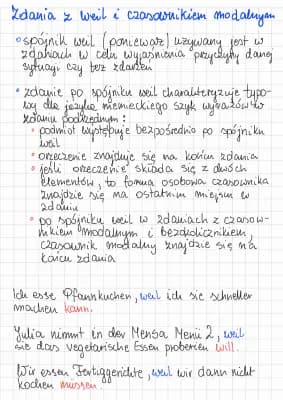 Zdania z weil i czasownikiem modalnym
spójnik weil (ponieważ) używany jest w
zdaniach w celu wyjaśnienia przyczyny danej
sytuacji czy też zdarzeń
zdanie po spójniku weil charakteryzuje typo-
wy dla języka niemieckiego szyk wyrazów w
zdaniu podrzędnym:
podmiot występuje bezpośrednio po spójniku
weil
orzeczenie znajduje się na końcu zdania
jeśli orzeczenie składa się z dwóch
elementów, to forma osobowa czasownika
znajdzie się na ostatnim miejscu w
zdaniu
po spójniku weil w zdaniach z czasow-
nikiem modalnym i bezokolicznikiem,
czasownik modalny znajdzie się na
końcu zdania
Ich esse Pfannkuchen, weil ich sie schneller
machen kann.
Julia nimmt in der Mensa Menü 2, weil
sie das vegetarische Essen probieren will.
Wir essen Fertiggerichte, weil wir dann nicht
kochen müssen.